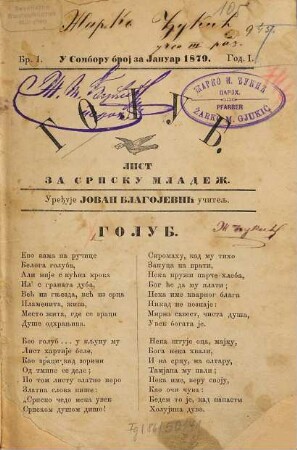 Жарко Ђукић
Бр. 1.
У Сомбору број за Јануар 1879.
Год. I.
ГОЛУБ.
ЖАРКО И. ЂУКИЋ
ПАРОХ.
PFARRER
ŽARKO M. GJUKIĆ
ЛИСТ
ЗА СРПСКУ МЛАДЕЖ.
Уређује ЈОВАН БЛАГОЈЕВИЋ учитељ.
ГОЛУБ.
Ево вама на ручице
Белога голуба,
Али није с кућна крова
Ил' с граната дуба,
Већ из гњезда, већ из срца
Пламенита, жива,
Место жита, где се враци
Душе одаравања.
Бео голуб... у кљуну му
Лист хартије беле,
Као вредни над зорици
Од тмине се деле;
По том листу златно перо
Златна слова ниже:
„Српско чедо нека увек
Српском душом дише!
Сиромаху, кад му тихо
Запуца на прати,
Нека пружи парче хлеба,
Бог ће да му плати;
Нека има имарног блага
Никад не познаје:
Мирна савест, чиста душа,
Увек богата је.
Нека штује оца, мајку,
Бога нека хвали,
И на срцу, на олтару,
Тамјана му пали;
Нека има, веру своју,
Као очи чува:
Бедем то је, кад напасти
Холујина дува.